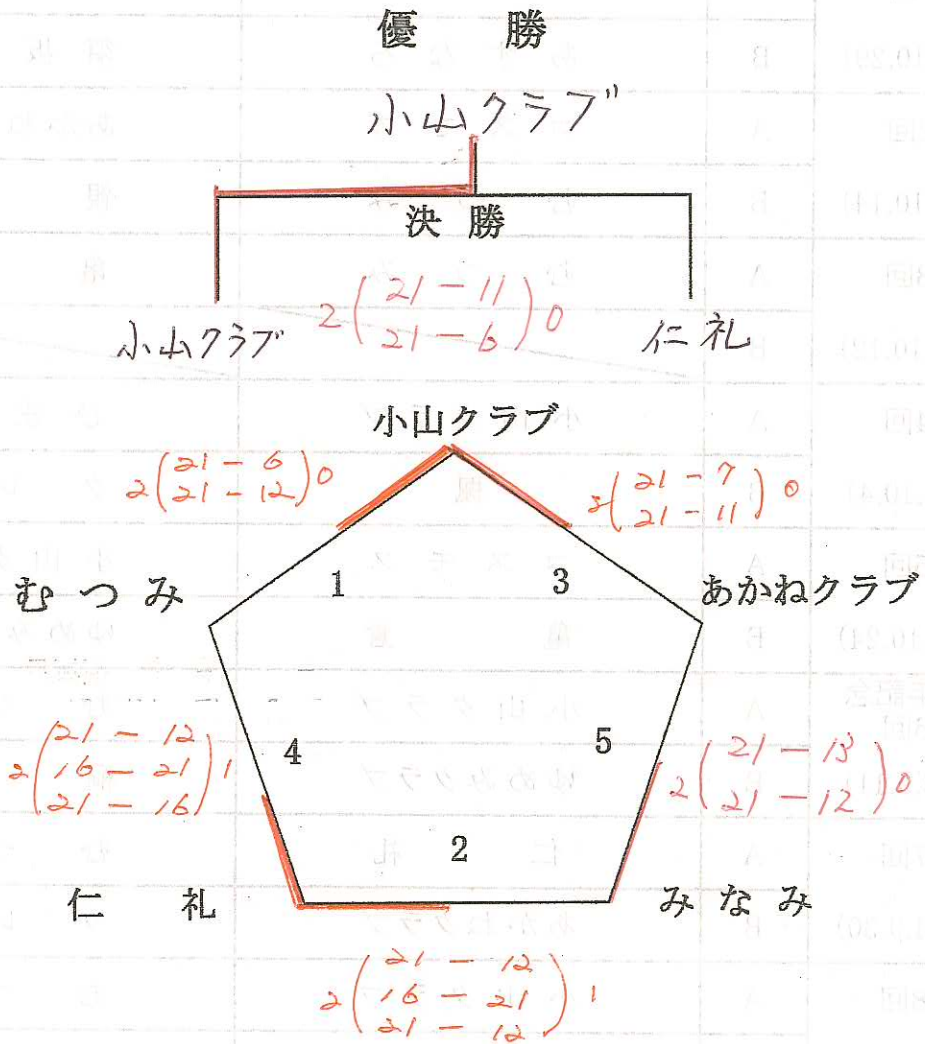 優 勝
小山クラブ
決 勝
小山クラブ 2(21-11 21-6)0 仁礼
小山クラブ
2(21-6 21-12)0
2(21-7 21-11)0
むつみ 1 3 あかねクラブ
2(21-12 16-21 21-16)1 4 5 2(21-13 21-12)0
2
仁 礼 みなみ
2(21-12 16-21 21-12)1